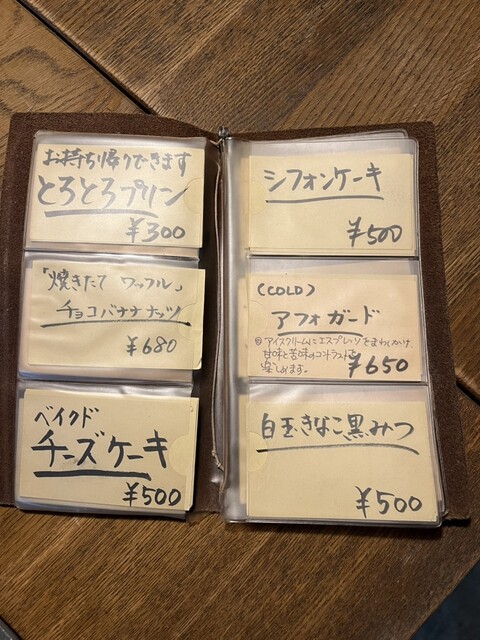 お持ち帰りできます
とろとろプリン
¥300
「焼きたて ワッフル」
チョコバナナナッツ
¥680
ベイクド
チーズケーキ
¥500
シフォンケーキ
¥500
(COLD)
アフォガード
◎アイスクリームにエスプレッソをまわしかけ、
甘味と苦味のコントラストを
楽しめます。
¥650
白玉きなこ黒みつ
¥500